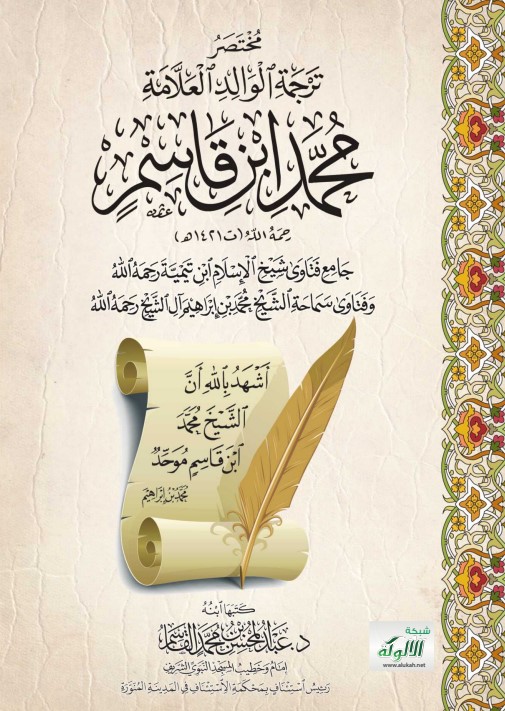 مُخْتَصَرُ
تَرْجَمَةِ ٱلْوَالِدِ ٱلْعَلَّامَةِ
مُحَمَّدِ ٱبْنِ قَاسِمٍ
رحمهُ اللهُ (ت ١٤٢١هـ)
جَامِعِ فَتَاوَىٰ شَيْخِ الْإِسْلَامِ ابْنِ تَيْمِيَّةَ رَحِمَهُ اللهُ
وَفَتَاوَىٰ سَمَاحَةِ الشَّيْخِ مُحَمَّدِ بْنِ إِبْرَاهِيمَ آلِ الشَّيْخِ رَحِمَهُ اللهُ
أَشْهَدُ بِاللهِ أَنَّ
الشَّيْخَ مُحَمَّدَ
ٱبْنَ قَاسِمٍ مُوَحِّدٌ
مُحَمَّدُ بْنُ إِبْرَاهِيمَ
كَتَبَهَا ٱبْنُهُ
د. عَبْدُ الْمُحْسِنِ بْنُ مُحَمَّدٍ الْقَاسِمُ
إِمَامُ وَخَطِيبُ الْمَسْجِدِ النَّبَوِيِّ الشَّرِيفِ
رَئِيسُ اسْتِئْنَافٍ بِمَحْكَمَةِ الِاسْتِئْنَافِ فِي الْمَدِينَةِ الْمُنَوَّرَةِ
شبكة
الألوكة
www.alukah.net